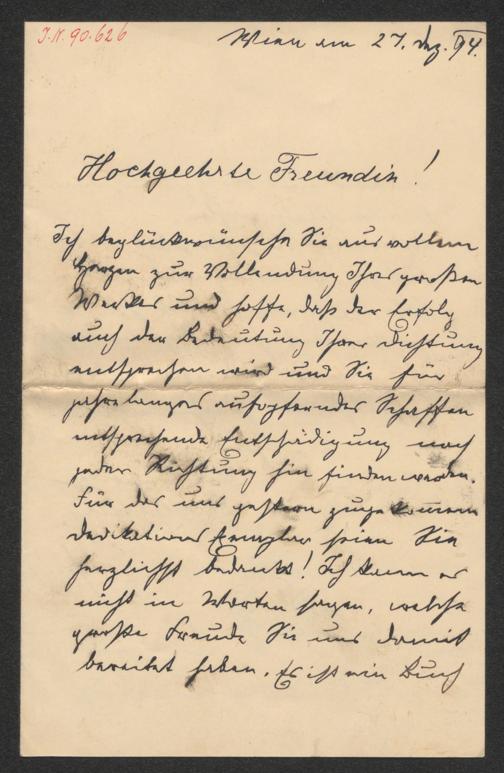 J.N. 90.626
Wien am 27. Dez. 94.
Hochgeehrte Freundin!
Ich beglückwünsche Sie aus vollem
Herzen zur Vollendung Ihres großen
Werkes und hoffe, daß der Erfolg
auch der Bedeutung Ihrer Dichtung
entsprechen wird und Sie für
jahrelanges aufopferndes Schaffen
entsprechende Entschädigung nach
jeder Richtung hin finden werden.
Für das uns gestern zugekommene
Dedikations Exemplar seien Sie
herzlichst bedankt! Ich kann es
nicht in Worten sagen, welche
große Freude Sie uns damit
bereitet haben. Es ist ein Buch